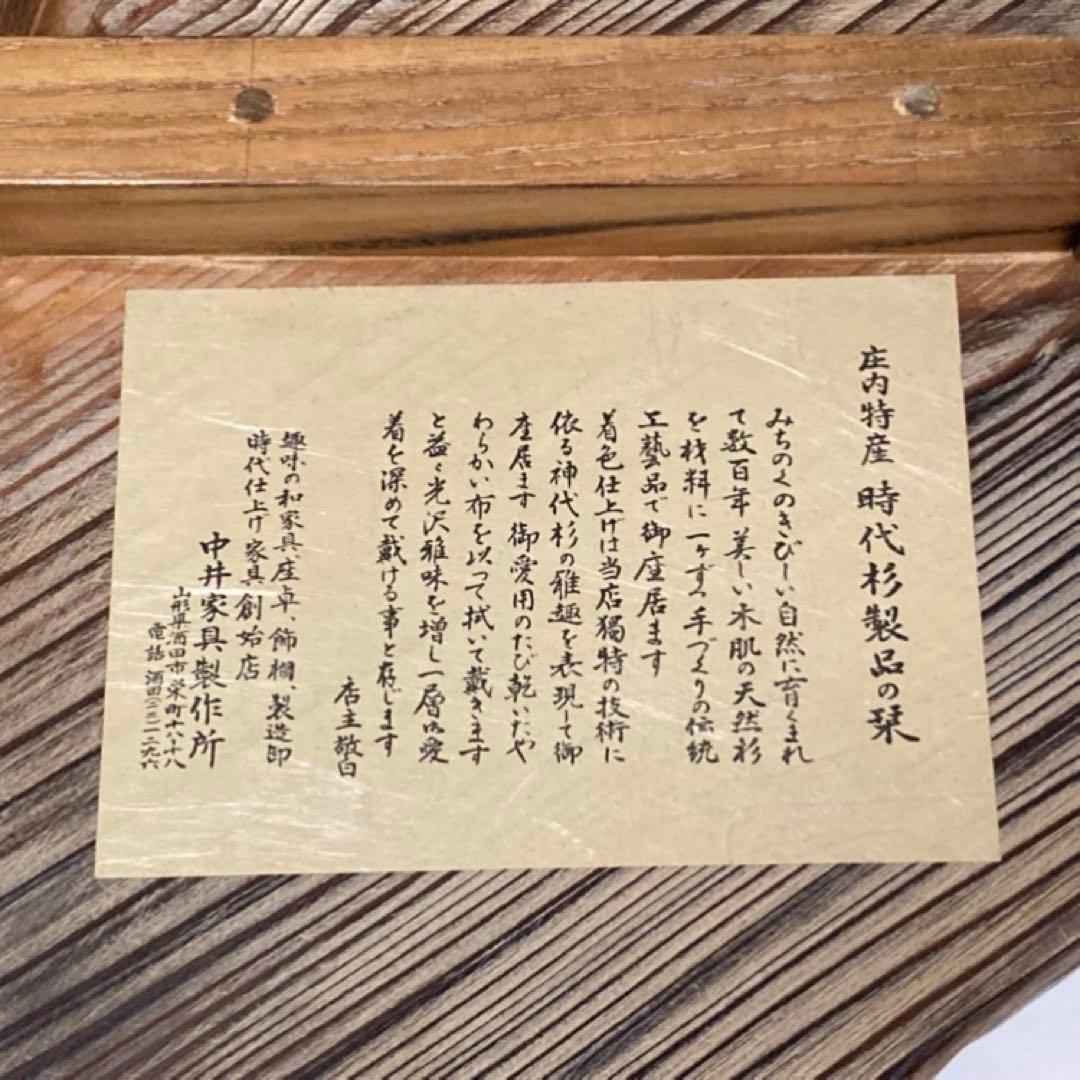 庄内特産 時代杉製品の栞
みちのくのきびしい自然に育くまれ
て数百年 美しい木肌の天然杉
を材料に一ヶずつ手づくりの伝統
工藝品で御座居ます
着色仕上げは当店獨特の技術に
依る神代杉の雅趣を表現して御
座居ます 御愛用のたび乾いたや
わらかい布を以つて拭いて戴きます
と益々光沢雅味を増し一層御愛
着を深めて戴ける事と存じます
店主敬白
趣味の和家具、座卓、飾棚、製造卸
時代仕上げ家具創始店
中井家具製作所
山形県酒田市栄町十八ー十八
電話 酒田(二)三一二九六